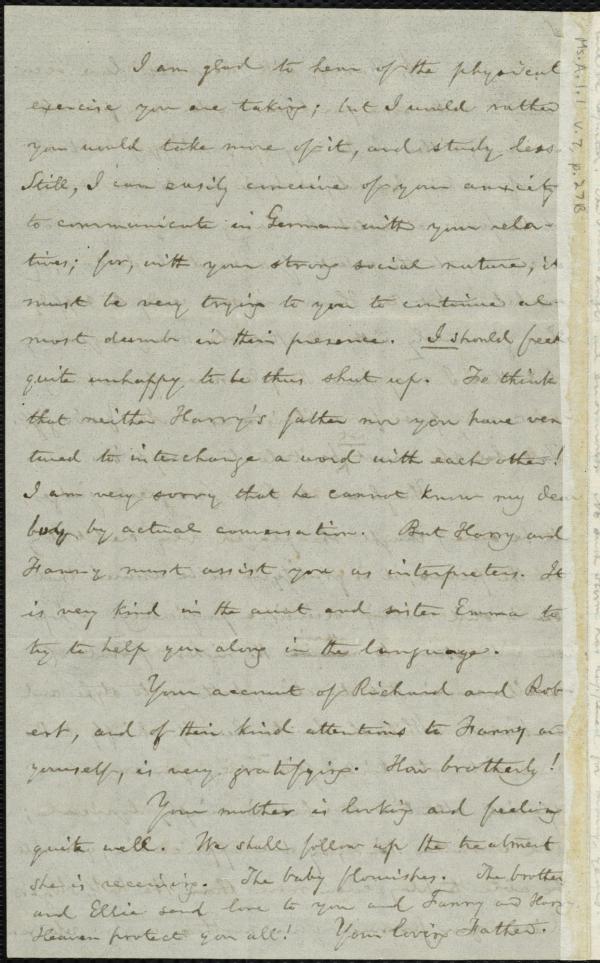 I am glad to hear of the physical
exercise you are taking; but I would rather
you would take more of it, and study less
Still, I can easily conceive of your anxiety
to communicate in German with your rela-
tives; for, with your strong social nature, it
must be very trying to you to continue al-
most dumb in their presence. I should feel
quite unhappy to be thus shut up. To think
that neither Harry's father nor you have ven
tured to interchange a word with each other!
I am very sorry that he cannot know my dea
boy by actual conversation. But Harry and
Fanny must assist you as interpreters. It
is very kind in the aunt and sister Emma to
try to help you along in the language.
Your account of Richard and Rob
ert, and of their kind attentions to Fanny an
yourself, is very gratifying. How brotherly!
Your mother is looking and feeling
quite well. We shall follow up the treatment
she is receiving. The baby flourishes. The brother
and Ellie send love to you and Fanny and Harry
Heaven protect you all! Your loving Father.
Ms.A.1.1 v.7, p.27B